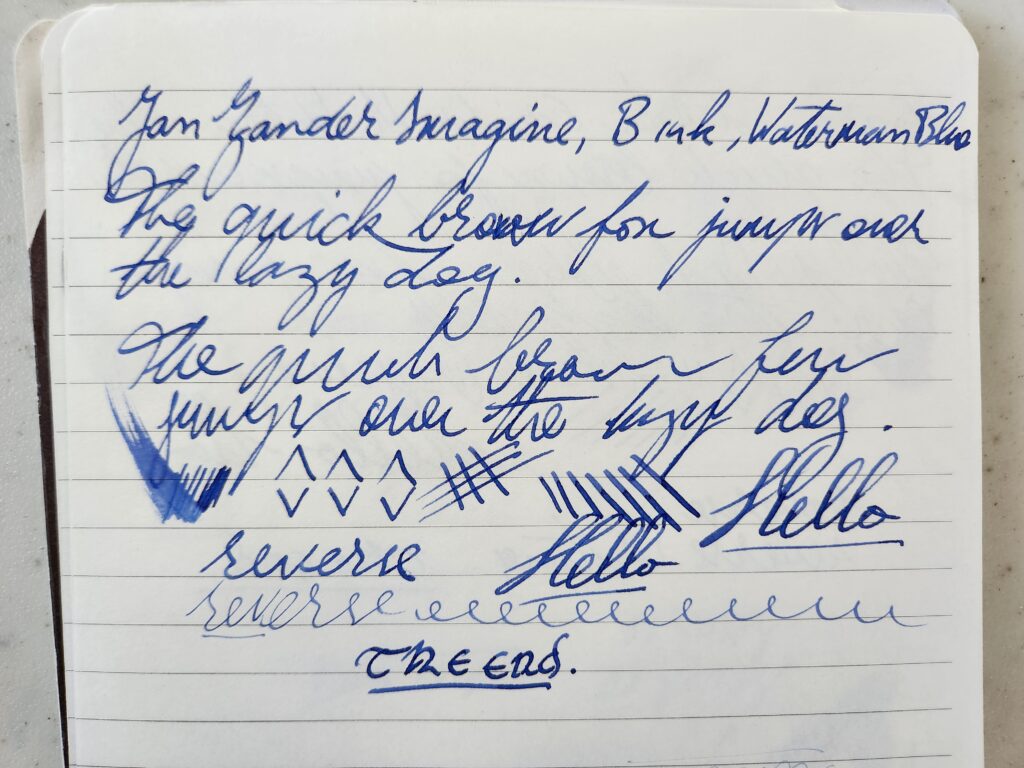 Jan Zander Imagine, B ink, Waterman Blue
The quick brown fox jumps over
the lazy dog.
The quick brown fox
jumps over the lazy dog.
Hello
reverse Hello
reverse
THE END.